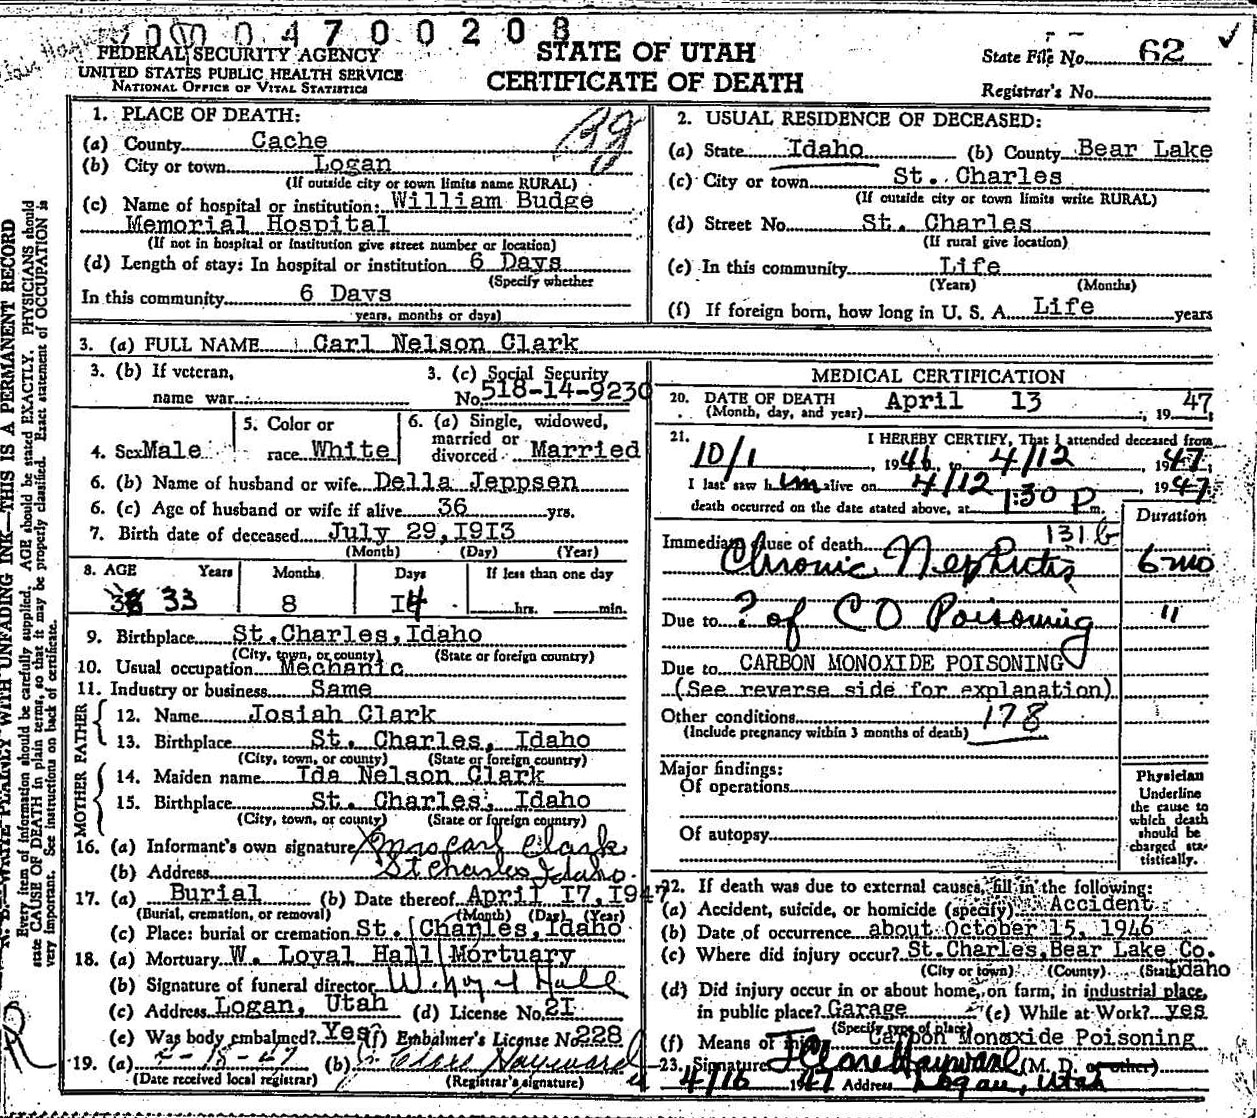 00004700208
FEDERAL SECURITY AGENCY
UNITED STATES PUBLIC HEALTH SERVICE
NATIONAL OFFICE OF VITAL STATISTICS
STATE OF UTAH
CERTIFICATE OF DEATH
State File No. 62 ✓
Registrar's No.
N. B.—WRITE PLAINLY WITH UNFADING INK—THIS IS A PERMANENT RECORD
Every item of information should be carefully supplied. AGE should be stated EXACTLY. PHYSICIANS should
state CAUSE OF DEATH in plain terms, so that it may be properly classified. Exact statement of OCCUPATION is
very important. See instructions on back of certificate.
1. PLACE OF DEATH:
(a) County Cache
(b) City or town Logan
(If outside city or town limits name RURAL)
(c) Name of hospital or institution: William Budge
Memorial Hospital
(If not in hospital or institution give street number or location)
(d) Length of stay: In hospital or institution 6 Days
(Specify whether
In this community 6 Days
years, months or days)
2. USUAL RESIDENCE OF DECEASED:
(a) State Idaho (b) County Bear Lake
(c) City or town St. Charles
(If outside city or town limits write RURAL)
(d) Street No. St. Charles
(If rural give location)
(e) In this community Life
(Years) (Months)
(f) If foreign born, how long in U. S. A. Life years
3. (a) FULL NAME Carl Nelson Clark
3. (b) If veteran,
name war
3. (c) Social Security
No. 518-14-9230
4. Sex Male
5. Color or
race White
6. (a) Single, widowed,
married or
divorced Married
6. (b) Name of husband or wife Della Jeppsen
6. (c) Age of husband or wife if alive 36 yrs.
7. Birth date of deceased July 29, 1913
(Month) (Day) (Year)
8. AGE Years Months Days If less than one day
33 8 14 hrs. min.
9. Birthplace St. Charles, Idaho
(City, town, or county) (State or foreign country)
10. Usual occupation Mechanic
11. Industry or business Same
FATHER
12. Name Josiah Clark
13. Birthplace St. Charles, Idaho
(City, town, or county) (State or foreign country)
MOTHER
14. Maiden name Ida Nelson Clark
15. Birthplace St. Charles, Idaho
(City, town, or county) (State or foreign country)
16. (a) Informant's own signature X Mrs Carl Clark
(b) Address St Charles Idaho.
17. (a) Burial (b) Date thereof April 17, 1947
(Burial, cremation, or removal) (Month) (Day) (Year)
(c) Place: burial or cremation St. Charles, Idaho
18. (a) Mortuary W. Loyal Hall Mortuary
(b) Signature of funeral director W. Loyal Hall
(c) Address Logan, Utah (d) License No. 21
(e) Was body embalmed? Yes (f) Embalmer's License No. 228
19. (a) 4-18-47 (b) Clare Hayward
(Date received local registrar) (Registrar's signature)
MEDICAL CERTIFICATION
20. DATE OF DEATH April 13, 1947
(Month, day, and year)
21. I HEREBY CERTIFY, That I attended deceased from
10/1, 1946, to 4/12, 1947;
I last saw him alive on 4/12, 1947
death occurred on the date stated above, at 1:30 P. m.
Duration
131 b
Immediate cause of death Chronic Nephritis 6 mo
Due to ? of CO Poisoning "
Due to CARBON MONOXIDE POISONING
(See reverse side for explanation)
Other conditions 178
(Include pregnancy within 3 months of death)
Major findings:
Of operations
Of autopsy
Physician
Underline
the cause to
which death
should be
charged sta-
tistically.
22. If death was due to external causes, fill in the following:
(a) Accident, suicide, or homicide (specify) Accident
(b) Date of occurrence about October 15, 1946
(c) Where did injury occur? St. Charles, Bear Lake Co.
(City or town) (County) (State) Idaho
(d) Did injury occur in or about home, on farm, in industrial place,
in public place? Garage (e) While at Work? yes
(Specify type of place)
(f) Means of injury Carbon Monoxide Poisoning
23. Signature J Clare Hayward (M. D. or other)
4/16 1947 Address Logan, Utah